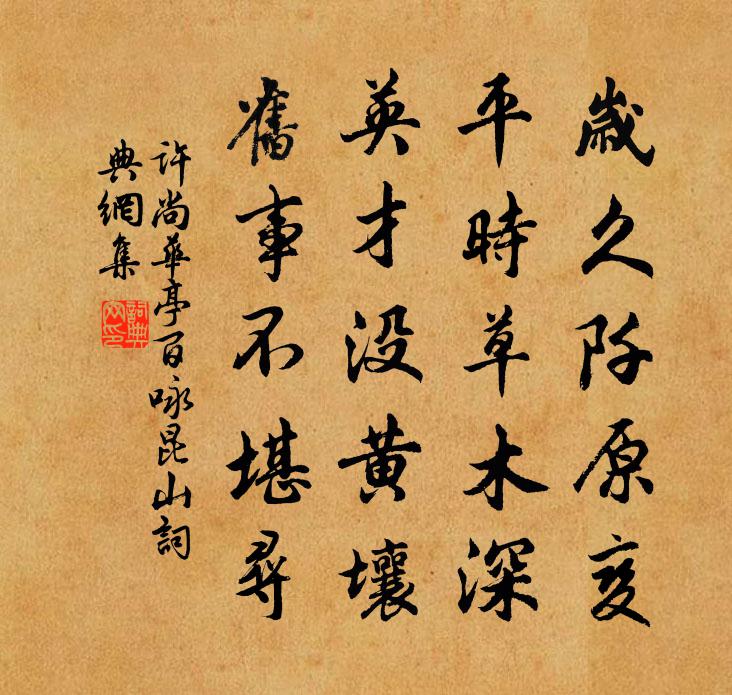 歲久阡原变
平時草木深
英才没黄壤
舊事不堪尋
許尚華亭百咏昆山詞
典網集
詞典网印